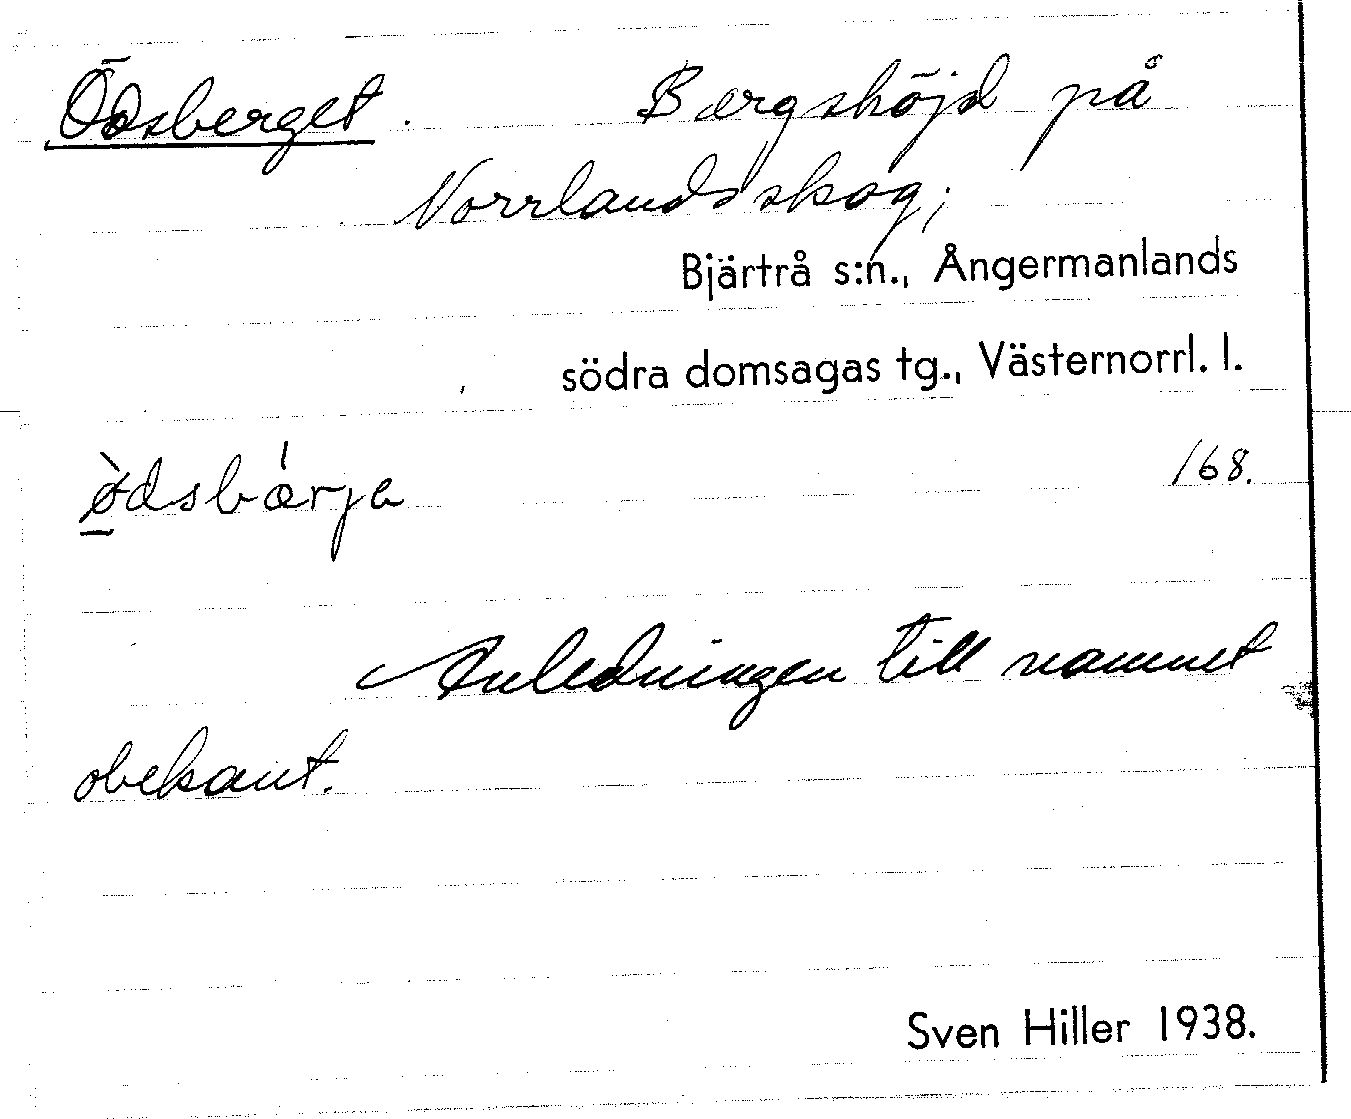 Ödsberget. Bergshöjd på
Norrlandsskog;
Bjärtrå s:n., Ångermanlands
södra domsagas tg., Västernorrl. l.
ø̲̀dsbǽrja 168.
Anledningen till namnet
obekant.
Sven Hiller 1938.